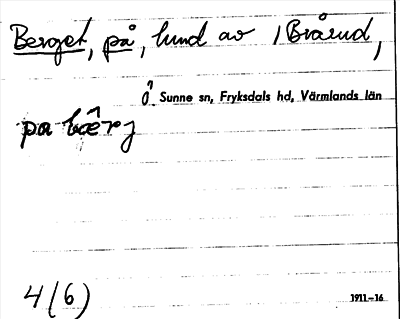 Berget, på, lund av 1 Brårud,
Ö. Sunne sn, Fryksdals hd, Värmlands län
pa bæ̂rj
4 (6)
1911–16